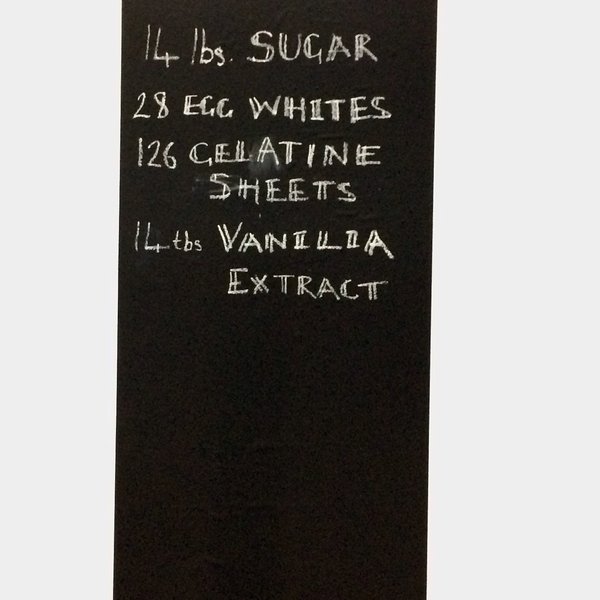 14 lbs. SUGAR
28 EGG WHITES
126 GELATINE
SHEETS
14 tbs VANILLA
EXTRACT